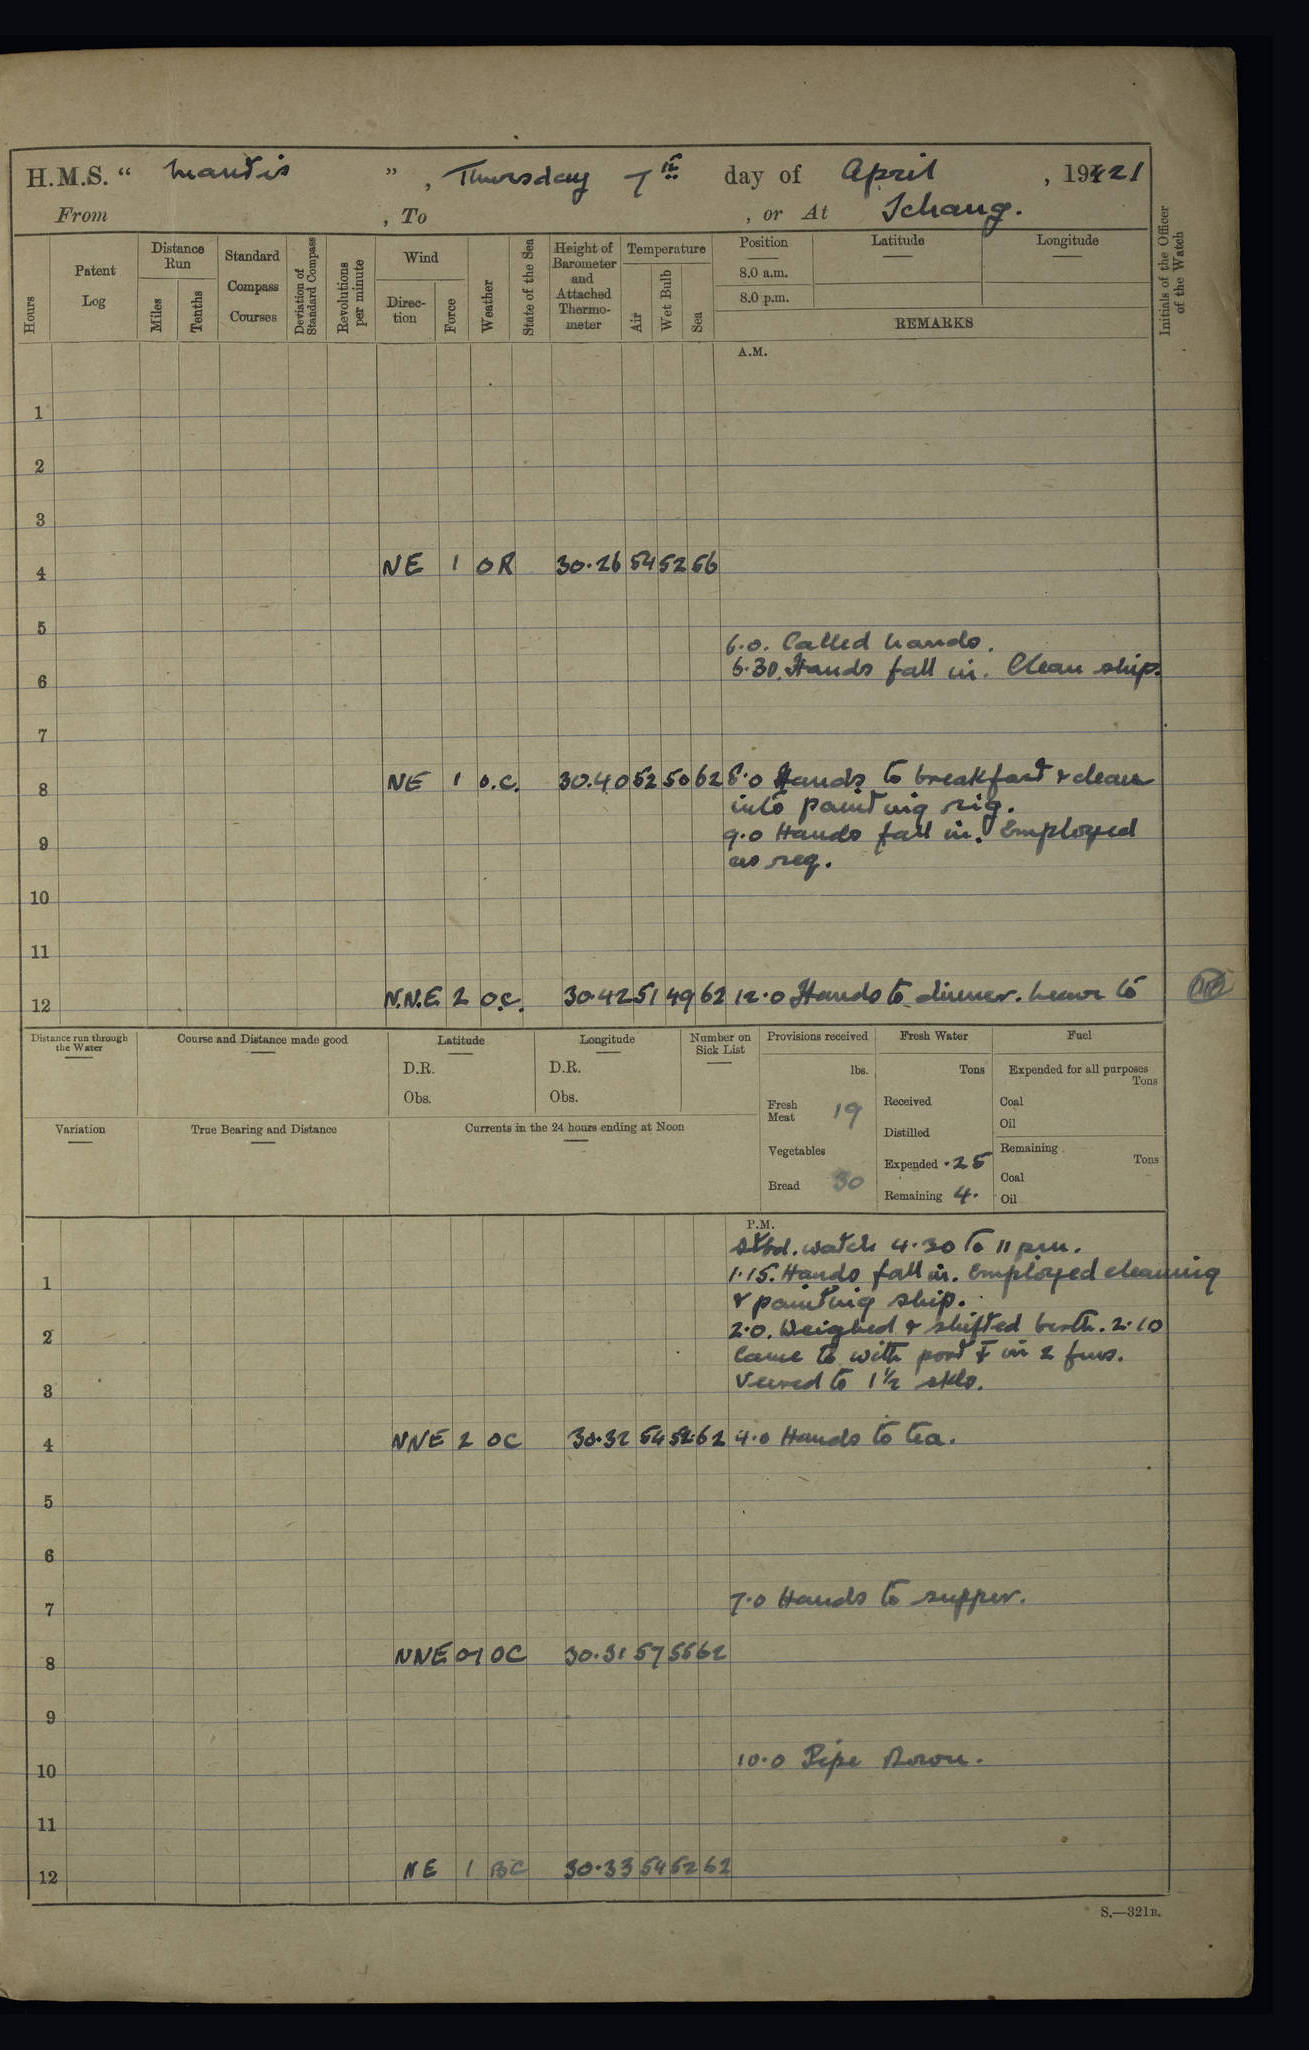 H.M.S. " Mantis ", Thursday 7th day of April, 1921
From , To , or At Ichang.
Hours
Patent Log
Distance Run
Miles
Tenths
Standard Compass Courses
Deviation of Standard Compass
Revolutions per minute
Wind
Direc-tion
Force
Weather
State of the Sea
Height of Barometer and Attached Thermo-meter
Temperature
Air
Wet Bulb
Sea
Position
8.0 a.m.
8.0 p.m.
Latitude
Longitude
REMARKS
Initials of the Officer of the Watch
A.M.
1
2
3
4 NE 1 OR 30.26 54 52 56
5
6.0. Called hands.
6.30. Hands fall in. Clean ship.
6
7
8 NE 1 O.C. 30.40 52 50 62 8.0 Hands to breakfast & clean
into painting rig.
9.0 Hands fall in. Employed
9
as req.
10
11
12 N.N.E 2 O.C. 30.42 51 49 62 12.0 Hands to dinner. Leave to
Distance run through the Water
Course and Distance made good
Latitude
D.R.
Obs.
Longitude
D.R.
Obs.
Number on Sick List
Provisions received
lbs.
Fresh Meat 19
Vegetables
Bread 30
Fresh Water
Tons
Received
Distilled
Expended .25
Remaining 4.
Fuel
Expended for all purposes
Tons
Coal
Oil
Remaining
Tons
Coal
Oil
Variation
True Bearing and Distance
Currents in the 24 hours ending at Noon
P.M.
Stbd. watch 4.30 to 11 pm.
1 1.15. Hands fall in. Employed cleaning
& painting ship.
2 2.0. Weighed & shifted berth. 2.10
Came to with port ⚓ in 2 fms.
3 Veered to 1½ skls.
4 NNE 2 OC 30.32 54 52 62 4.0 Hands to tea.
5
6
7 7.0 Hands to supper.
8 NNE 0-1 OC 30.31 57 55 62
9
10 10.0 Pipe Down.
11
12 NE 1 BC 30.33 54 52 62
S.—321B.